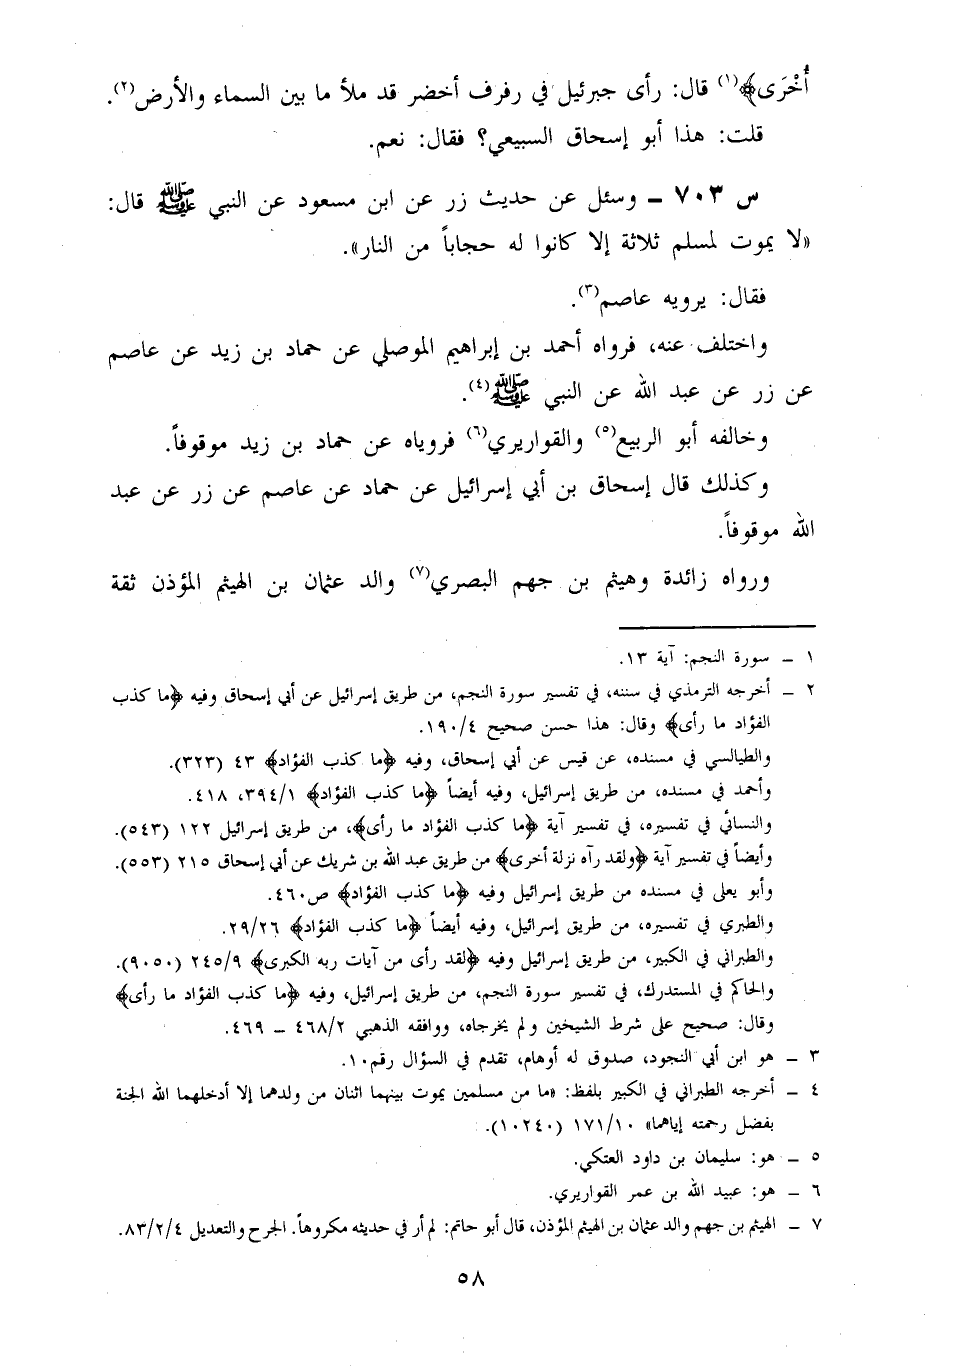 أُخْرَى﴾(١) قال: رأى جبرئيل في رفرف أخضر قد ملأ ما بين السماء والأرض(٢).
قلت: هذا أبو إسحاق السبيعي؟ فقال: نعم.
س ٧٠٣ ـ وسئل عن حديث زر عن ابن مسعود عن النبي ﷺ قال:
«لا يموت لمسلم ثلاثة إلا كانوا له حجاباً من النار».
فقال: يرويه عاصم(٣).
واختلف عنه، فرواه أحمد بن إبراهيم الموصلي عن حماد بن زيد عن عاصم
عن زر عن عبد الله عن النبي ﷺ(٤).
وخالفه أبو الربيع(٥) والقواريري(٦) فروياه عن حماد بن زيد موقوفاً.
وكذلك قال إسحاق بن أبي إسرائيل عن حماد عن عاصم عن زر عن عبد
الله موقوفاً.
ورواه زائدة وهيثم بن جهم البصري(٧) والد عثمان بن الهيثم المؤذن ثقة
١ ـ سورة النجم: آية ١٣.
٢ ـ أخرجه الترمذي في سننه، في تفسير سورة النجم، من طريق إسرائيل عن أبي إسحاق وفيه ﴿ما كذب
الفؤاد ما رأى﴾ وقال: هذا حسن صحيح ١٩٠/٤.
والطيالسي في مسنده، عن قيس عن أبي إسحاق، وفيه ﴿ما كذب الفؤاد﴾ ٤٣ (٣٢٣).
وأحمد في مسنده، من طريق إسرائيل، وفيه أيضاً ﴿ما كذب الفؤاد﴾ ٣٩٤/١، ٤١٨.
والنسائي في تفسيره، في تفسير آية ﴿ما كذب الفؤاد ما رأى﴾، من طريق إسرائيل ١٢٢ (٥٤٣).
وأيضاً في تفسير آية ﴿ولقد رآه نزلة أخرى﴾ من طريق عبد الله بن شريك عن أبي إسحاق ٢١٥ (٥٥٣).
وأبو يعلى في مسنده من طريق إسرائيل وفيه ﴿ما كذب الفؤاد﴾ ص٤٦٠.
والطبري في تفسيره، من طريق إسرائيل، وفيه أيضاً ﴿ما كذب الفؤاد﴾ ٢٩/٢٦.
والطبراني في الكبير، من طريق إسرائيل وفيه ﴿لقد رأى من آيات ربه الكبرى﴾ ٢٤٥/٩ (٩٠٥٠).
والحاكم في المستدرك، في تفسير سورة النجم، من طريق إسرائيل، وفيه ﴿ما كذب الفؤاد ما رأى﴾
وقال: صحيح على شرط الشيخين ولم يخرجاه، ووافقه الذهبي ٤٦٨/٢ ـ ٤٦٩.
٣ ـ هو ابن أبي النجود، صدوق له أوهام، تقدم في السؤال رقم١٠.
٤ ـ أخرجه الطبراني في الكبير بلفظ: «ما من مسلمين يموت بينهما اثنان من ولدهما إلا أدخلهما الله الجنة
بفضل رحمته إياهما» ١٧١/١٠ (١٠٢٤٠).
٥ ـ هو: سليمان بن داود العتكي.
٦ ـ هو: عبيد الله بن عمر القواريري.
٧ ـ الهيثم بن جهم والد عثمان بن الهيثم المؤذن، قال أبو حاتم: لم أر في حديثه مكروهاً. الجرح والتعديل ٨٣/٢/٤.
٥٨